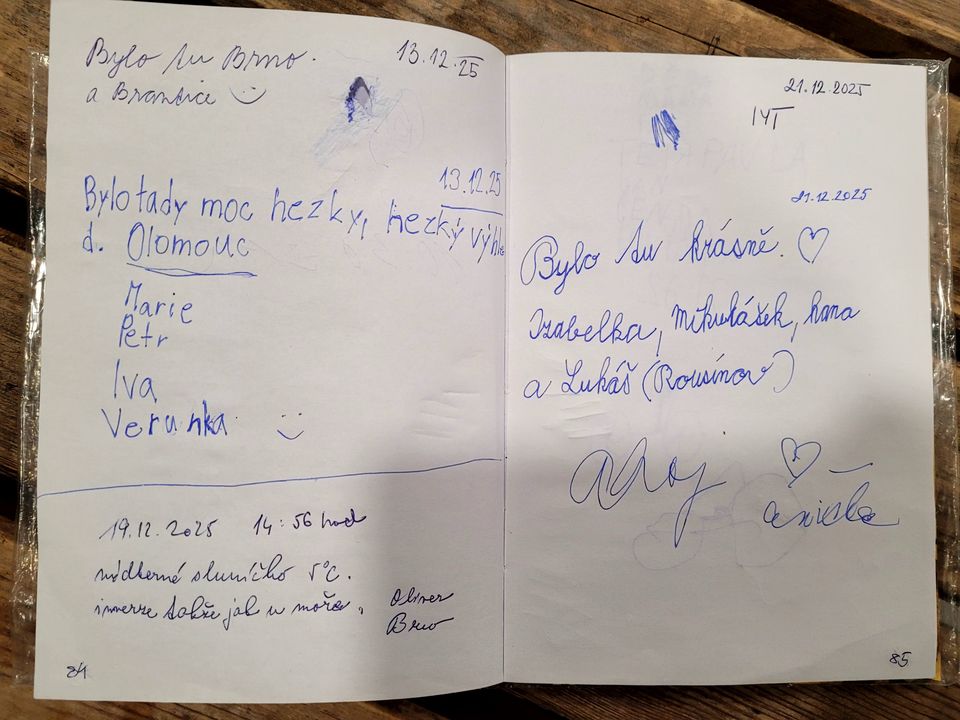 Bylo tu Brno.
13.12.25
a Brantice
13.12.25
Bylo tady moc hezky, hezký výhle
d. Olomouc
Marie
Petr
Iva
Verunka :)
19.12.2025 14:56 hod
nádherné sluníčko 5°C.
inverze takže jak u moře.
Oliver
Brno
84
21.12.2025
21.12.2025
Bylo tu krásně. ♡
Izabelka, Mikulášek, hana
a Lukáš (Rousínov)
Ahoj ♡
85